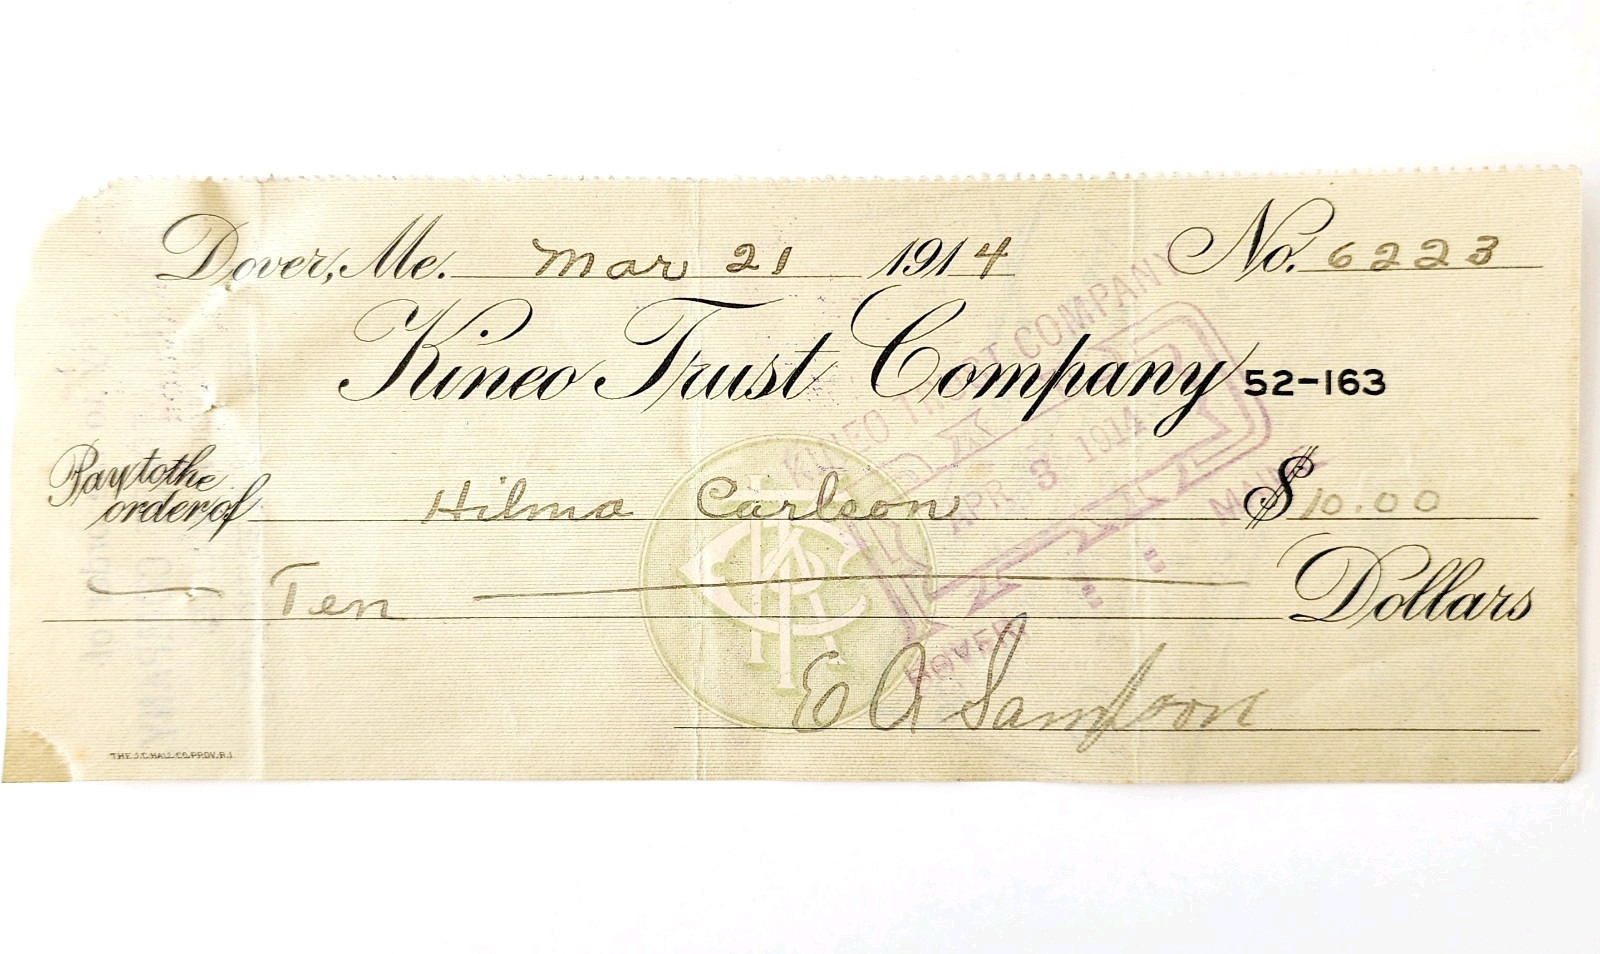 Dover, Me. Mar 21 1914 No. 6223
Kineo Trust Company 52-163
Pay to the order of Hilma Carlson $10.00
Ten Dollars
E A Sampson
THE J.C. HALL CO. PROV. R.I.
KTC
KINEO TRUST COMPANY
PAID
APR 3 1914
DOVER MAINE